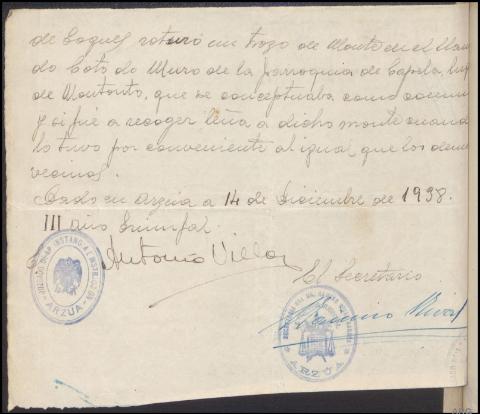 de Boques roturó un trozo de Monte en el llama
do Coto do Muro de la parroquia de Capela, lug
de Montouto, que se conceptuaba como comun
y si fué a recoger leña a dicho monte cuand
lo tuvo por conveniente al igual que los demas
vecinos.
Dado en Arzúa a 14 de Diciembre de 1938.
III año Triunfal.
Antonio Villar
El Secretario
Ramiro
JUZGADO DE 1ª INSTANCIA E INSTR
ARZUA
ARZÚA